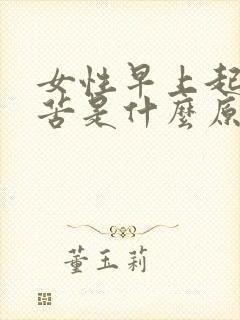 女性早上起
苦是什麼原
董玉莉